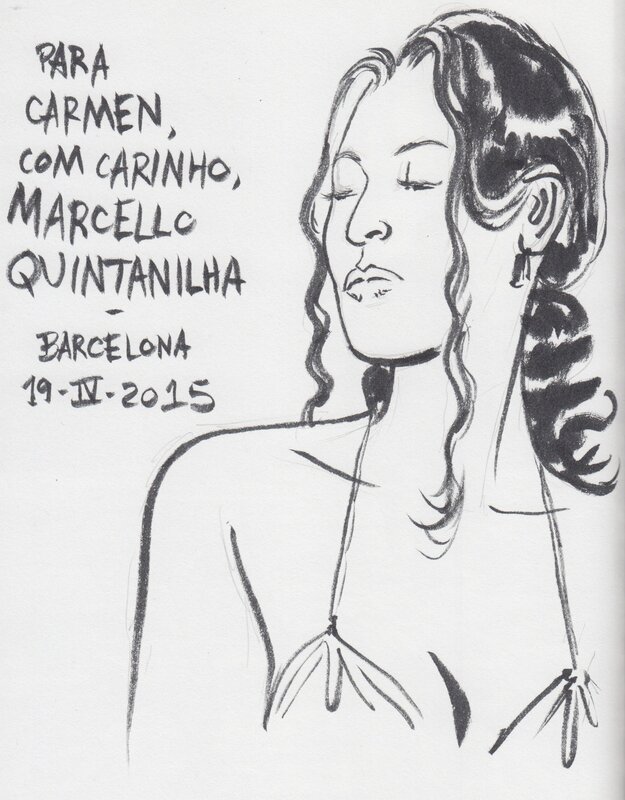 PARA
CARMEN,
COM CARINHO,
MARCELLO
QUINTANILHA
-
BARCELONA
19-IV-2015